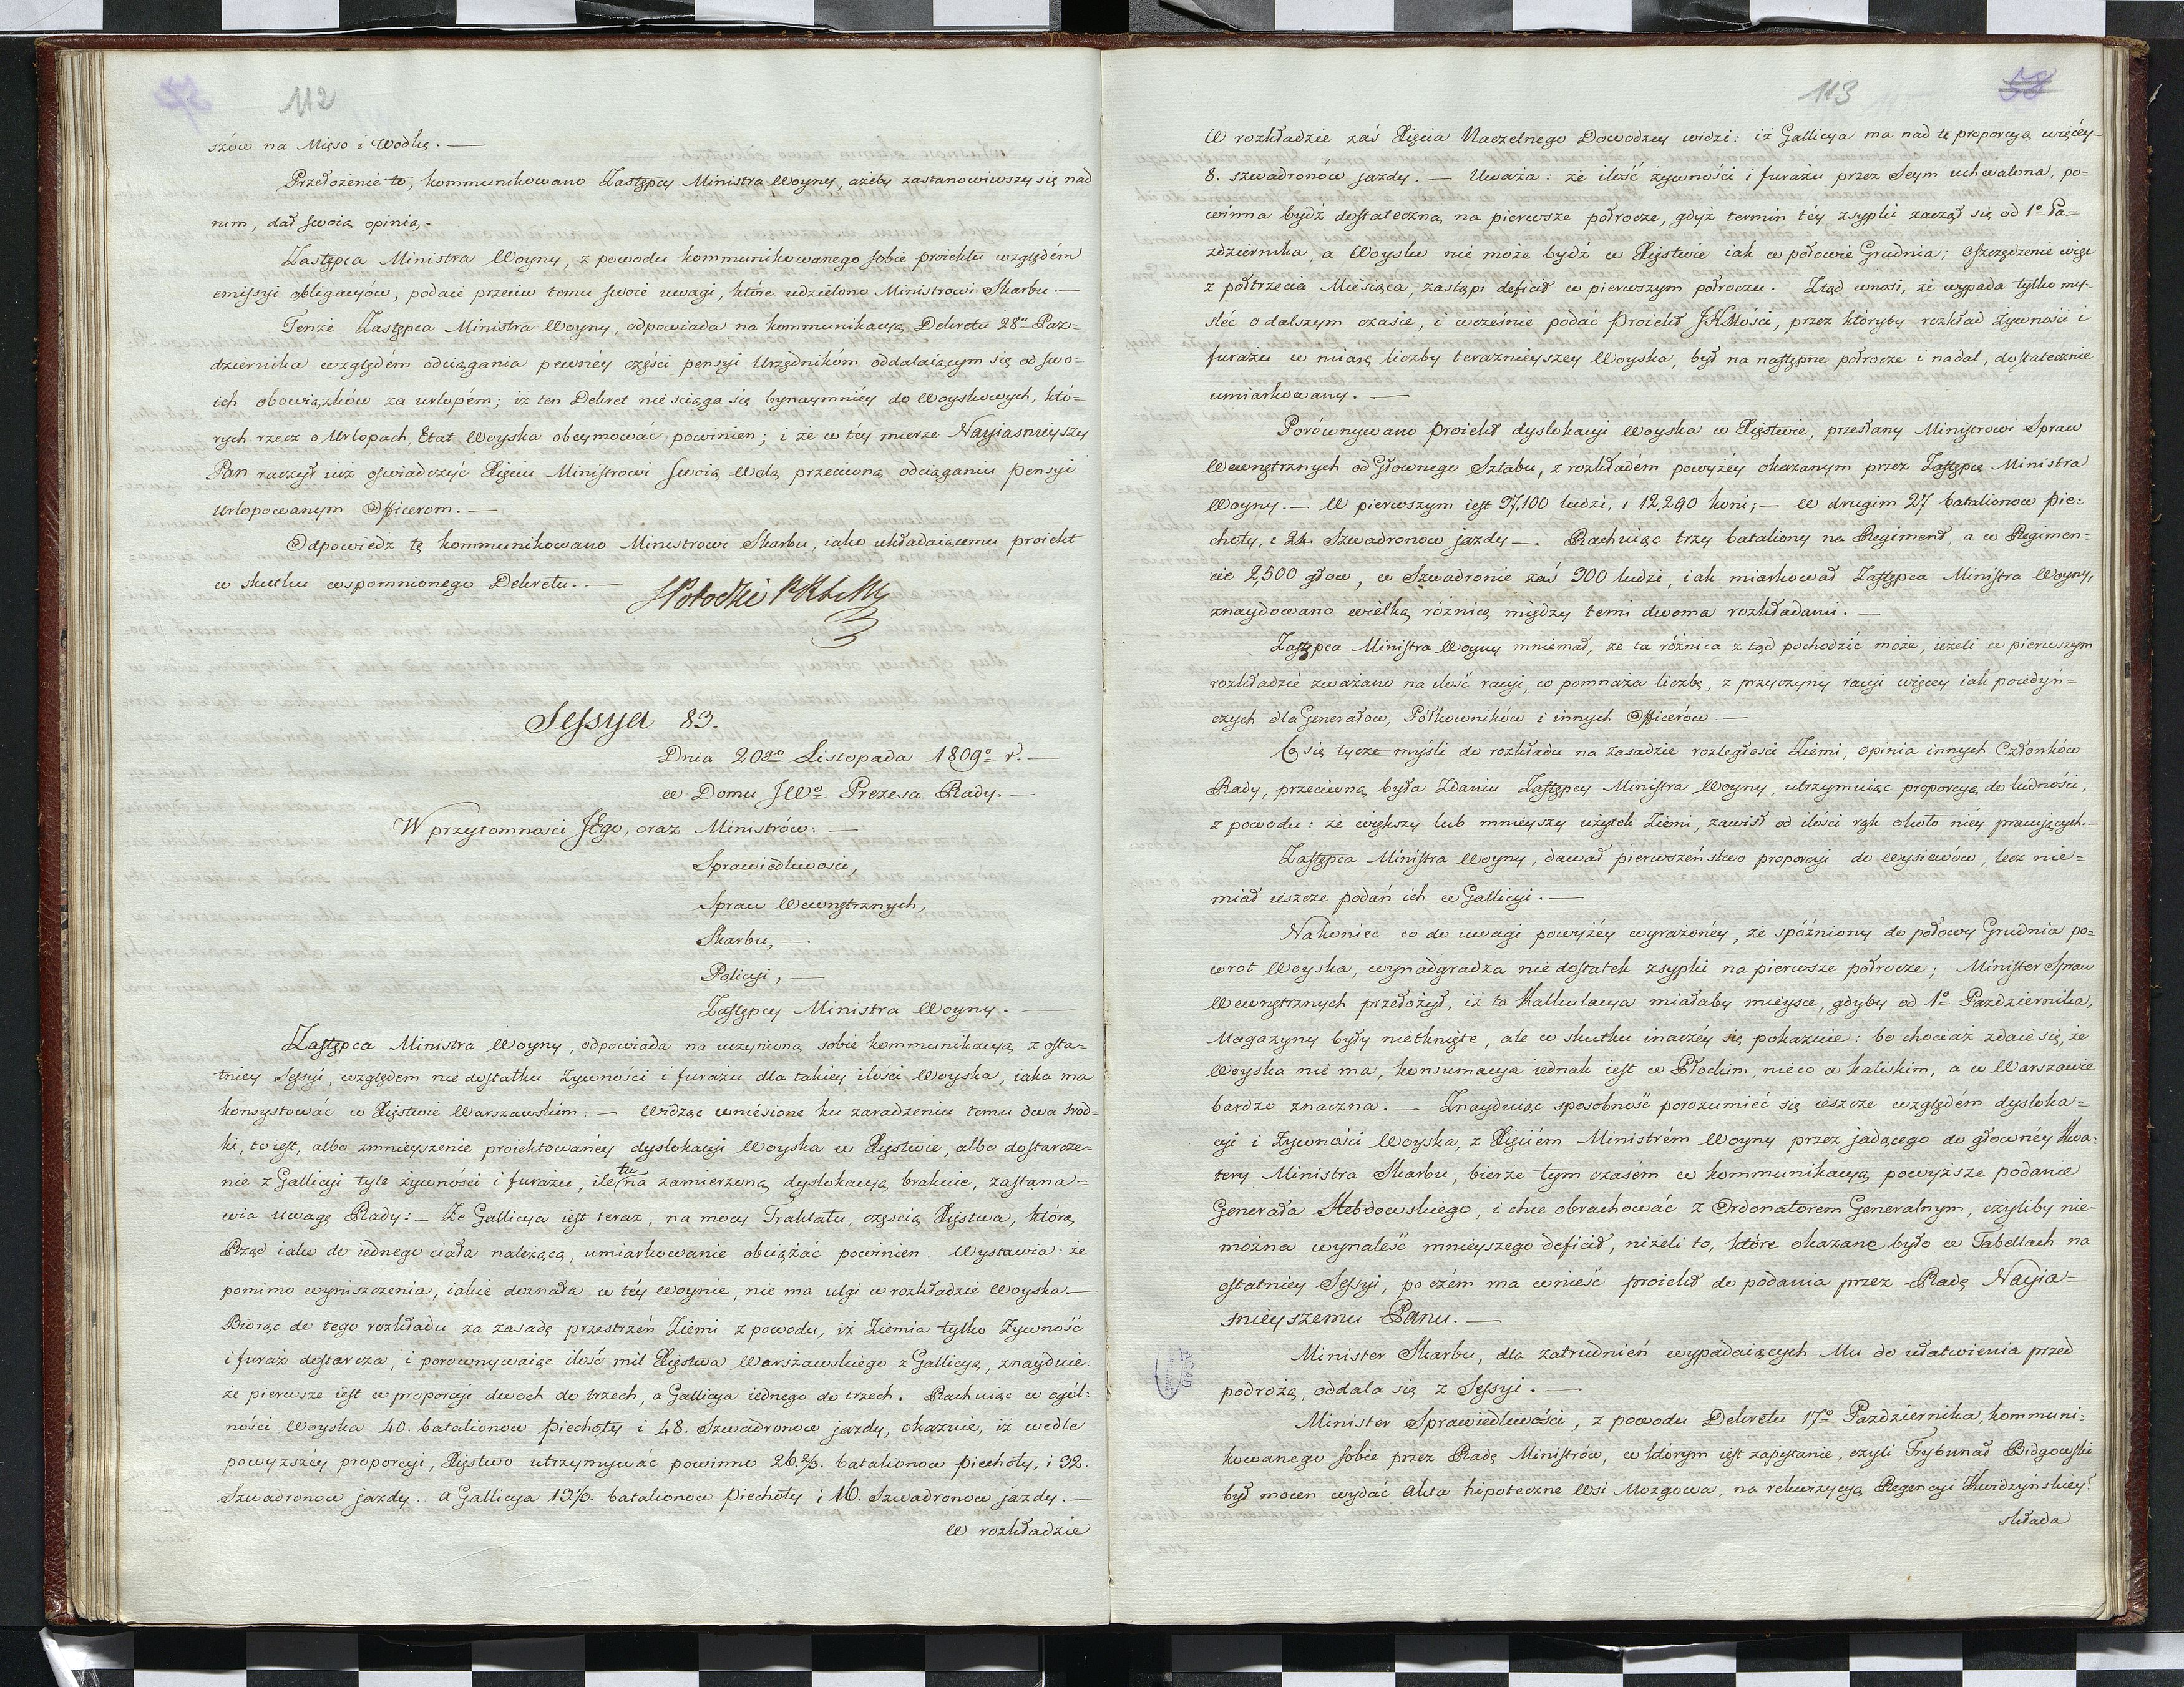 112
szów na Mięso i Wódkę. —
Przełożenie to, kommunikowano Zastępcy Ministra Woyny, ażeby zastanowiwszy się nad
nim, dał swoią opinią.
Zastępca Ministra Woyny, z powodu kommunikowanego sobie proiektu względém
emissyi obligacyów, podaie przeciw temu swoie uwagi, które udzielono Ministrowi Skarbu. —
Tenże Zastępca Ministra Woyny, odpowiada na kommunikacyą Dekretu 28º Paz=
dziernika względém odciągania pewnéy części pensyi Urzędnikóm oddalaiącym się od swo=
ich obowiązków za urlopém; iż ten Dekret nie ściąga się bynaymniéy do Woyskowych, któ=
rych rzecz o Urlopach, Etat Woyska obeymować powinien; i że w téy mierze Nayiasnieyszy
Pan raczył iuż oświadczyć Xięciu Ministrowi swoią wolą przeciwną odciąganiu pensyi
Urlopowanym Officerom. —
Odpowiedz tę kommunikowano Ministrowi Skarbu, iako układaiącemu proiekt
w skutku wspomnionego Dekretu. —
Sessya 83.
Dnia 20go Listopada 1809º r. —
w Domu JWº Prezesa Rady. —
W przytomności JEgo, oraz Ministrów: —
Sprawiedliwości,
Spraw Wewnętrznych,
Skarbu, —
Policyi, —
Zastępcy Ministra Woyny. —
Zastępca Ministra Woyny, odpowiada na uczynioną sobie kommunikacyą z osta=
tniey Sessyi, względem niedostatku żywności i furażu dla takiey ilości Woyska, iaka ma
konsystować w Xięstwie Warszawskim: — Widząc wniesione ku zaradzeniu temu dwa środ=
ki, to iest, albo zmnieyszenie proiektowanéy dyslokacyi Woyska w Xięstwie, albo dostarcze=
nie z Gallicyi tyle żywności i furażu, ile tu na zamierzoną dyslokacyą brakuie, zastana=
wia uwagę Rady: — Że Gallicya iest teraz, na mocy Traktatu, częścią Xięstwa, którą
Rząd iako do iednego ciała należącą, umiarkowanie obciążać powinien. Wystawia: że
pomimo wyniszczenia, iakie doznała w téy woynie, nie ma ulgi w rozkładzie Woyska. —
Biorąc do tego rozkładu za zasadę przestrzeń Ziemi z powodu, iż Ziemia tylko Żywność
i furaż dostarcza, i porównywaiąc ilość mil Xięstwa Warszawskiego z Gallicyą, znayduie:
że pierwsze iest w proporcyi dwoch do trzech, a Gallicya iednego do trzech. Rachuiąc w ogól=
ności Woyska 40. batalionow piechoty i 48. Szwadronow jazdy, okazuie, iż wedle
powyższéy proporcyi, Xięstwo utrzymywać powinno 26 2/3. batalionow piechoty, i 32.
Szwadronow jazdy. a Gallicya 13 1/3. batalionow piechoty i 16. Szwadronow jazdy. —
W rozkładzie
113
58
W rozkładzie zaś Xięcia Naczelnego Dowodzcy widzi: iż Gallicya ma nad tę proporcyą więcéy
8. szwadronów jazdy. — Uważa: że ilość żywności i furażu przez Seym uchwalona, po=
winna bydź dostateczną na pierwsze półrocze, gdyż termin téy zsypki zaczął się od 1º Pa=
zdziernika, a Woysko nie może bydź w Xięstwie iak w połowie Grudnia; Oszczędzenie więc
z półtrzecia Miesiąca, zastąpi deficit w pierwszym półroczu. Ztąd wnosi, że wypada tylko my=
sléć o dalszym czasie, i wcześnie podać Proiekt JKMości, przez któryby rozkład żywności i
furażu w miarę liczby teraznieyszey Woyska, był na następne półrocze i nadal, dostatecznie
umiarkowany. —
Porównywano proiekt dyslokacyi Woyska w Xięstwie, przesłany Ministrowi Spraw
Wewnętrznych od Głownego Sztabu, z rozkładém powyżéy okazanym przez Zastępcę Ministra
Woyny. — W pierwszym iest 37,100 ludzi, i 12,290 koni; — w drugim 27 batalionow pie=
choty, i 24. Szwadronow jazdy — Rachuiąc trzy bataliony na Regiment, a w Regimen=
cie 2,500 głow, w Szwadronie zaś 300 ludzi, iak miarkował Zastępca Ministra Woyny,
znaydowano wielką róźnicę między temi dwoma rozkładami. —
Zastępca Ministra Woyny mniemał, że ta róźnica z tąd pochodzić może, ieżeli w pierwszym
rozkładzie zważano na ilość racyi, co pomnaża liczbę, z przyczyny racyi więcey iak poiedyn=
czych dla Generałow, Półkowników i innych Officerów. —
Co się tycze myśli do rozkładu na zasadzie rozległości Ziemi, opinia innych Członków
Rady, przeciwną była Zdaniu Zastępcy Ministra Woyny, utrzymuiąc proporcyą do ludności,
z powodu: że większy lub mnieyszy użytek Ziemi, zawisł od ilości rąk około niéy pracuiących. —
Zastępca Ministra Woyny, dawał pierwszeństwo proporcyi do wysiewów, lecz nie=
miał ieszcze podań ich w Gallicyi. —
Nakoniec co do uwagi powyżéy wyrażonéy, że spóźniony do połowy Grudnia po=
wrot Woyska, wynadgradza niedostatek zsypki na pierwsze półrocze; Minister Spraw
Wewnętrznych przełożył, iż ta Kalkulacya miałaby mieysce, gdyby od 1º Pazdziernika,
Magazyny były nietknięte, ale w skutku inaczéy się pokazuie: bo chociaż zdaie się, że
Woyska nie ma, konsumacya iednak iest w Płockim, nieco w kaliskim, a w Warszawie
bardzo znaczna. — Znayduiąc sposobność porozumieć się ieszcze względém dysloka=
cyi i Żywności Woyska, z Xięciém Ministrém Woyny przez jadącego do głownéy Kwa=
tery Ministra Skarbu, bierze tym czasém w kommunikacyą powyższe podanie
Generała Hebdowskiego, i chce obrachować z Ordonatorem Generalnym, czyliby nie=
można wynaleść mnieyszego deficit, niżeli to, które okazane było w Tabellach na
ostatniey Sessyi, poczém ma wnieść proiekt do podania przez Radę Nayia=
snieyszemu Panu. —
Minister Skarbu, dla zatrudnień wypadaiących Mu do ułatwienia przed
podrożą, oddala się z Sessyi. —
Minister Sprawiedliwości, z powodu Dekretu 17º Pazdziernika, kommuni=
kowanego sobie przez Radę Ministrów, w którym iest zapytanie, czyli Trybunał Bidgowski
był mocen wydać Akta hipoteczne Wsi Mozgowa, na rekwizycyą Regencyi Kwidzyńskiey?
składa